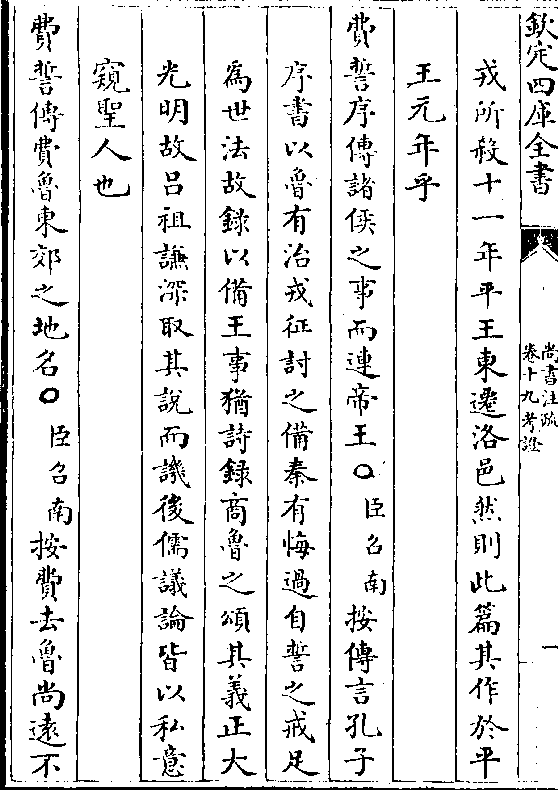 欽定四庫全書
尚書注疏
卷十九考證
一
戎所殺十一年平王東遷洛邑然則此篇其作於平
王元年乎
費誓序傳諸侯之事而連帝王〇臣召南按傳言孔子
序書以魯有治戎征討之備秦有悔過自誓之戒足
為世法故録以備王事猶詩録商魯之頌其義正大
光明故吕祖謙深取其說而譏後儒議論皆以私意
窺聖人也
費誓傳費魯東郊之地名〇臣召南按費去魯尚遠不